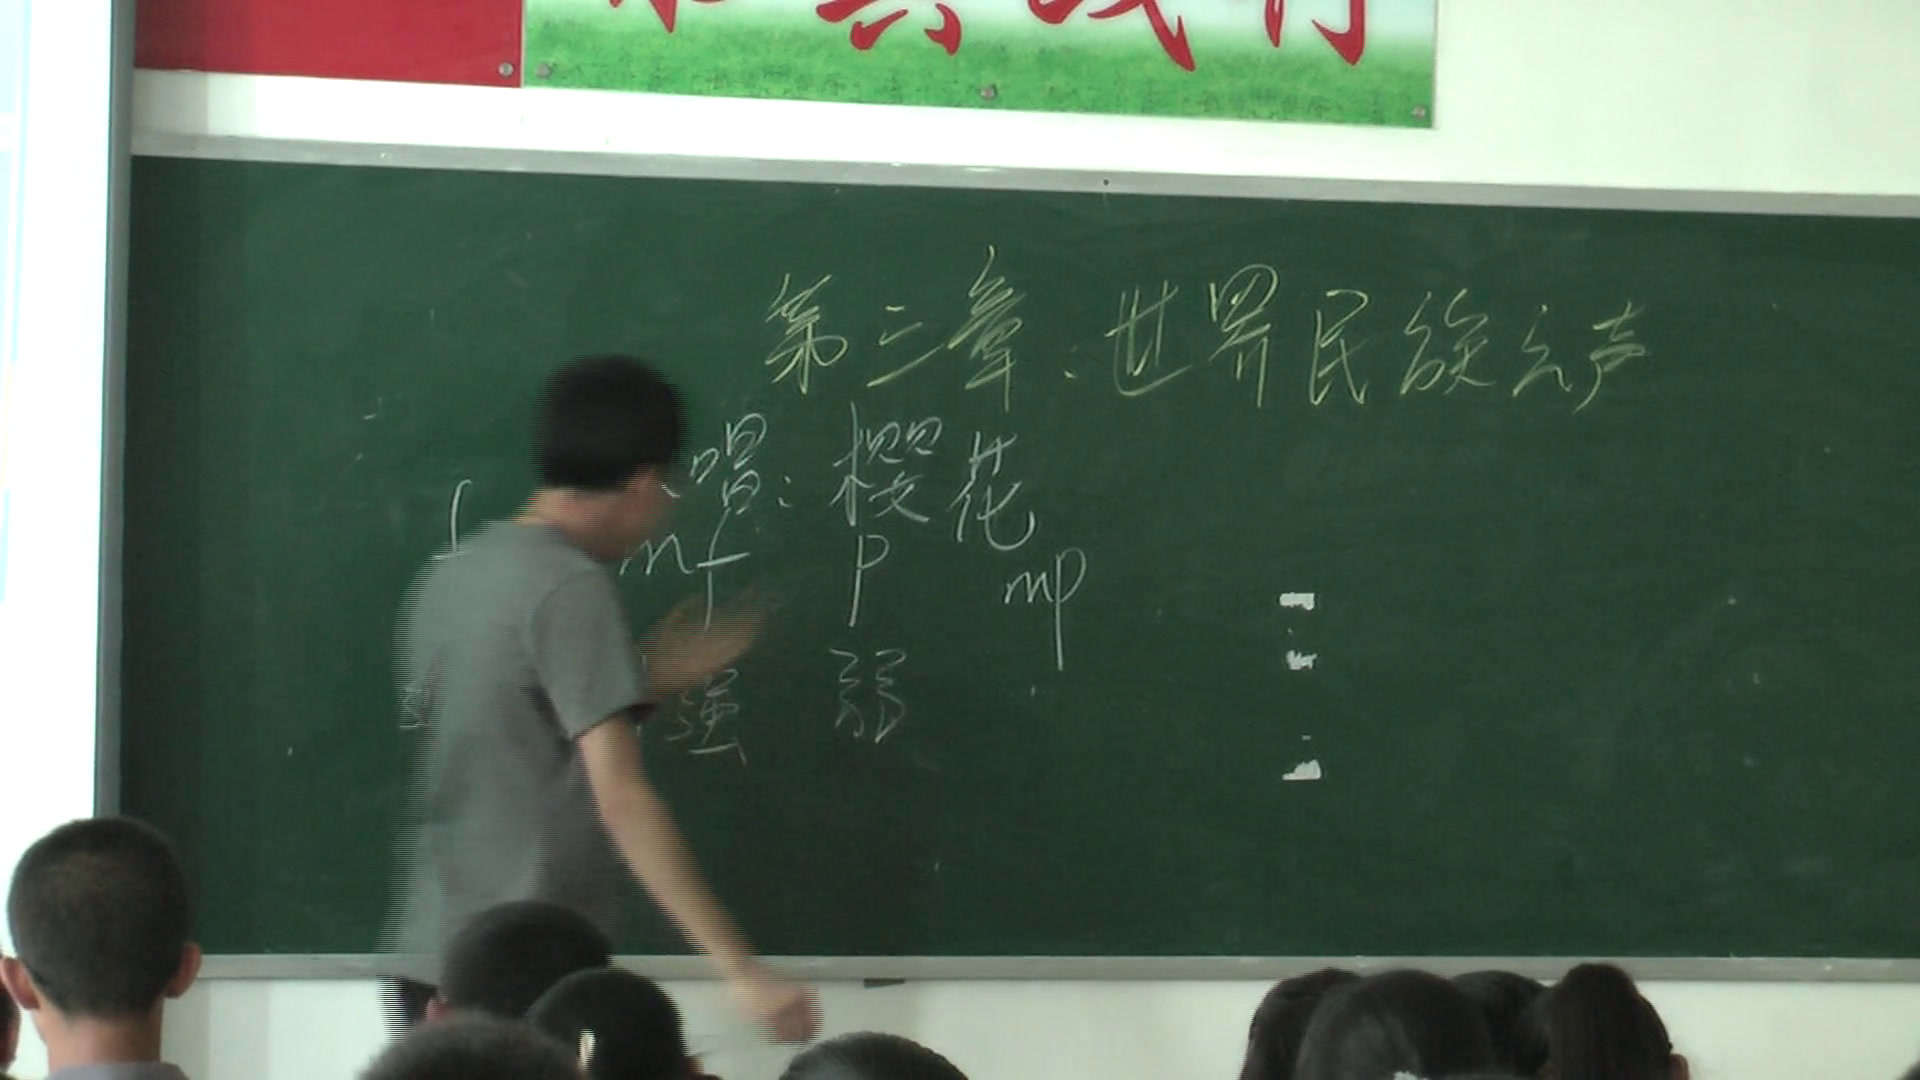 第三章：世界民族之声
唱：樱花
f mf p mp
强 弱